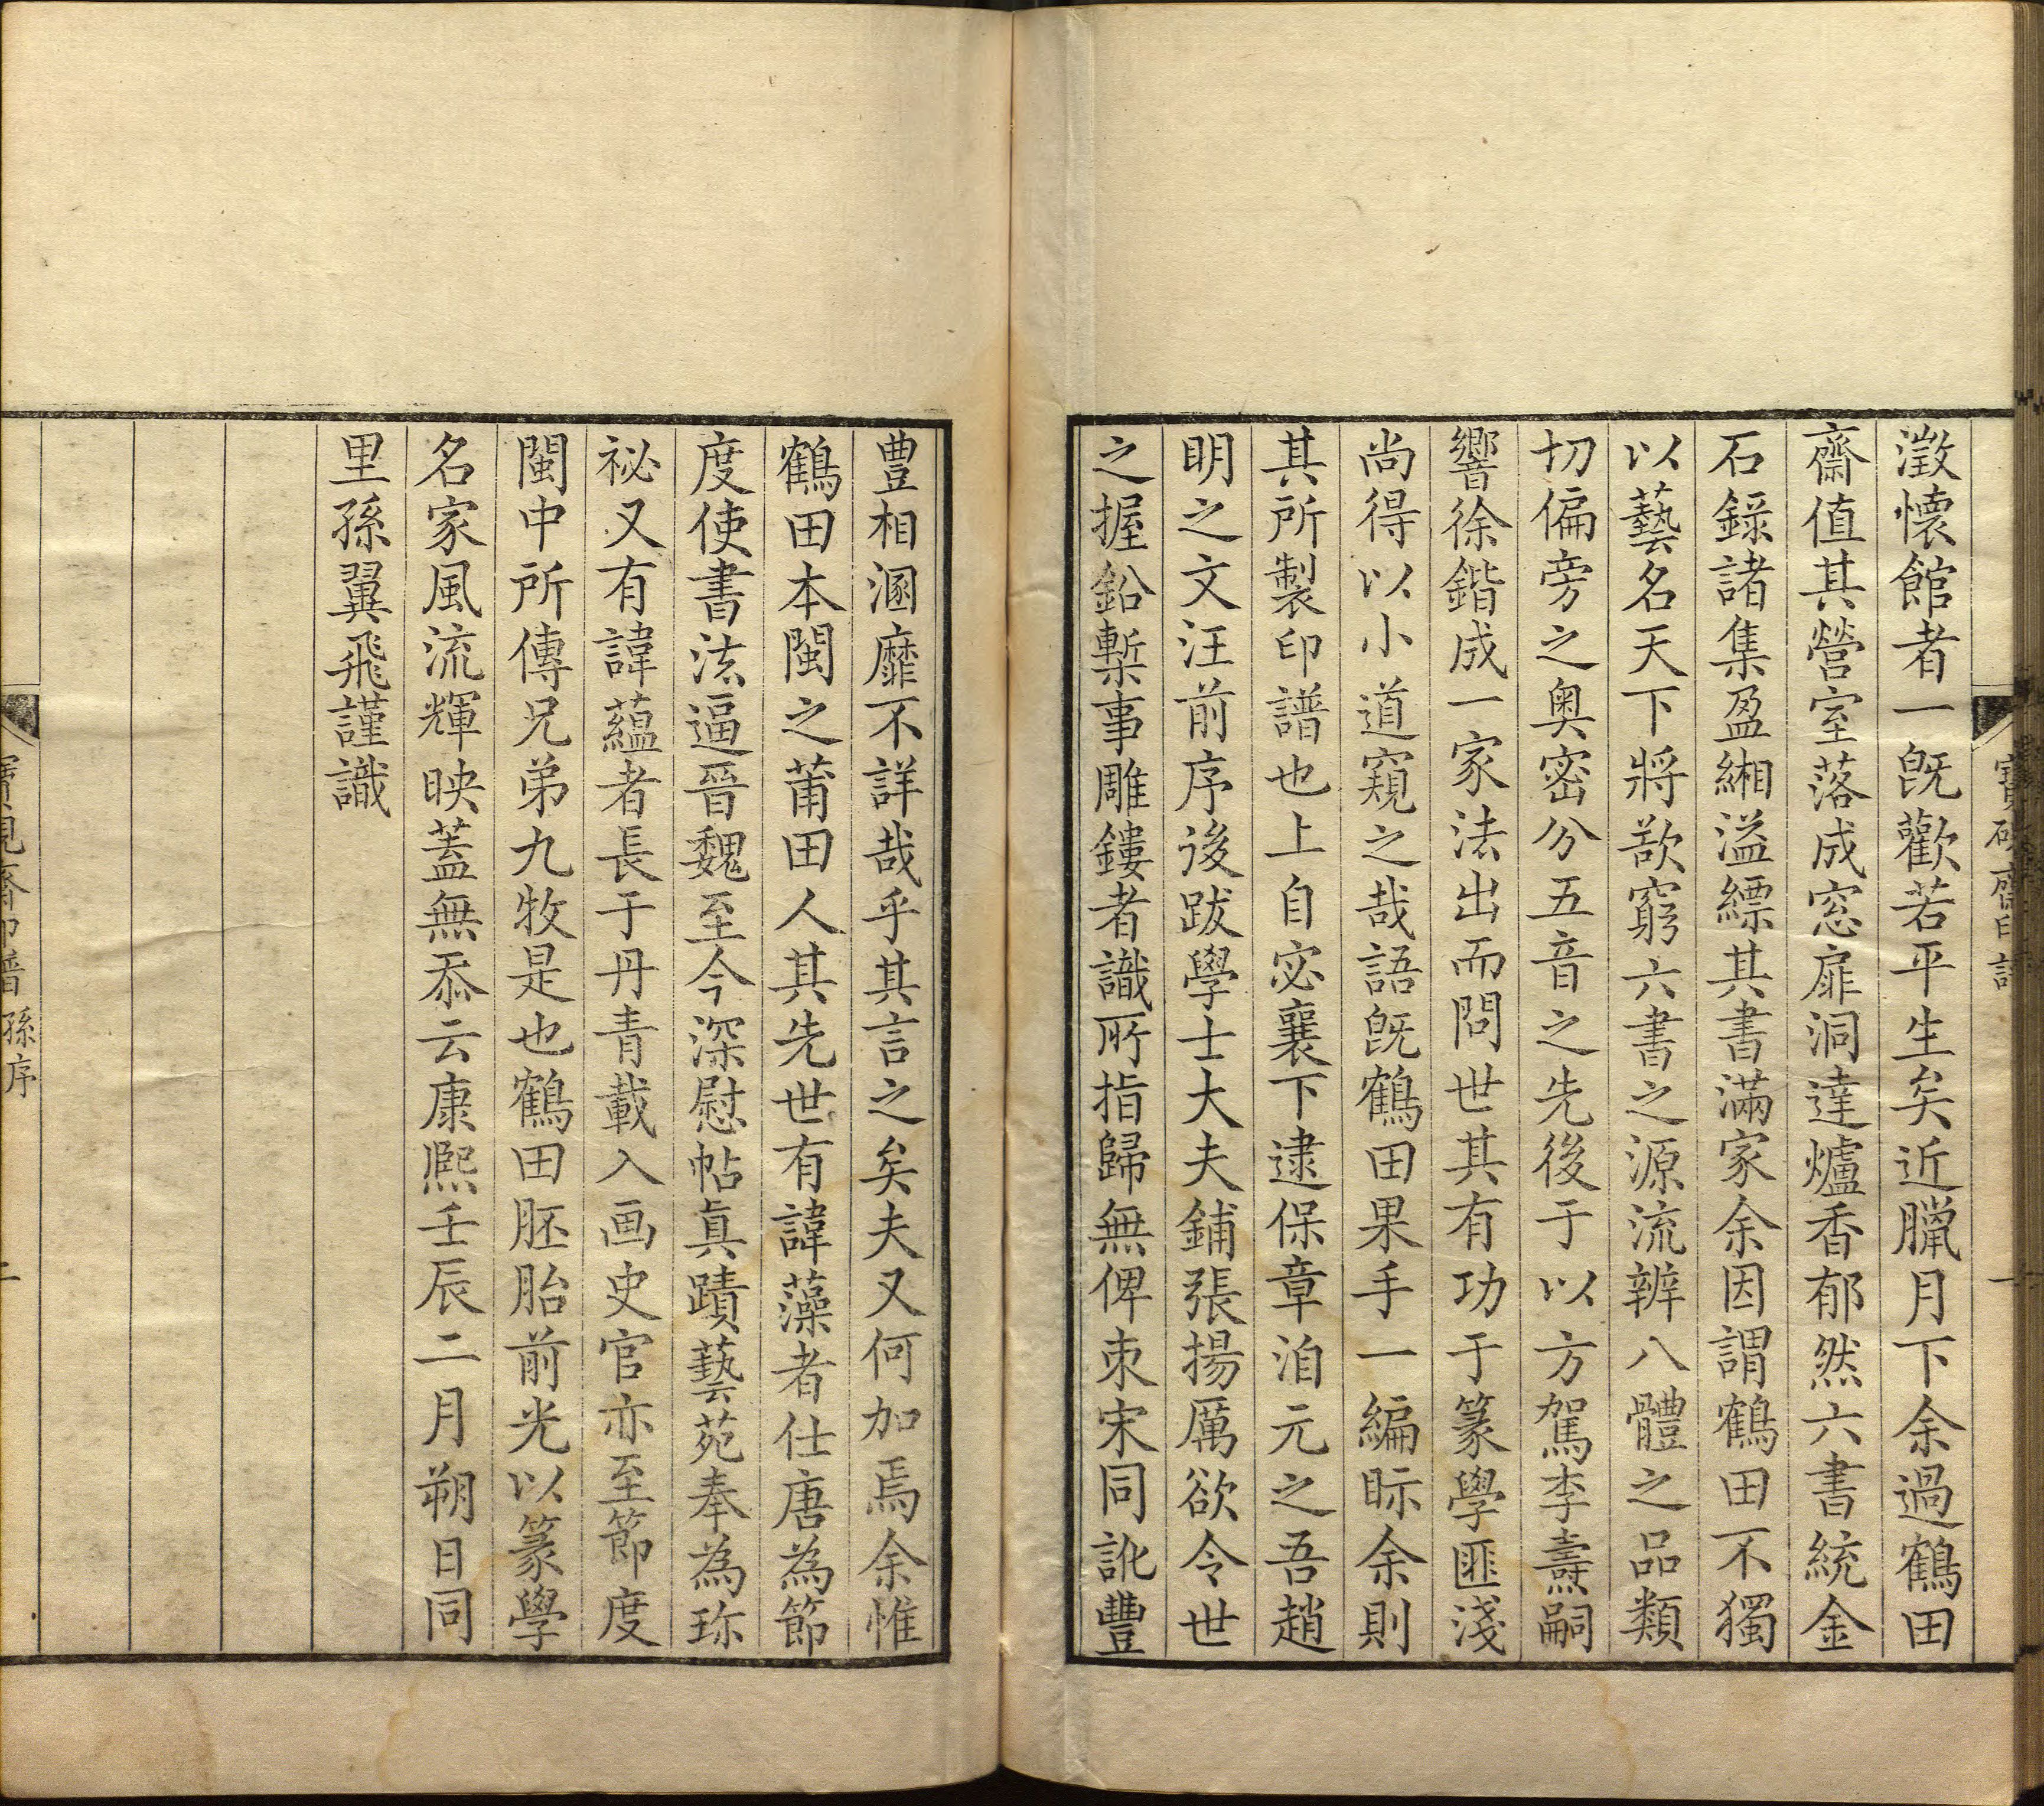 澂懷館者一旣歡若平生矣近臘月下余過鶴田
齋值其營室落成窓扉洞達爐香郁然六書統金
石錄諸集盈緗溢縹其書滿家余因謂鶴田不獨
以藝名天下將歆窮六書之源流辨八體之品類
切偏旁之奧密分五音之先後于以方駕李壽嗣
響徐鍇成一家法出而問世其有功于篆學匪淺
尚得以小道窺之哉語旣鶴田果手一編眎余則
其所製印譜也上自宓襄下逮保章洎元之吾趙
明之文汪前序後跋學士大夫鋪張揚厲欲令世
之握鉛槧事雕鏤者識所指歸無俾束宋同訛豐
豊相溷靡不詳哉乎其言之矣夫又何加焉余惟
鶴田本閩之莆田人其先世有諱藻者仕唐為節
度使書法逼晉魏至今深慰帖眞蹟藝苑奉為珎
祕又有諱蘊者長于丹青載入画史官亦至節度
閩中所傳兄弟九牧是也鶴田胚胎前光以篆學
名家風流輝映葢無忝云康熙壬辰二月朔日同
里孫翼飛謹識
孫序